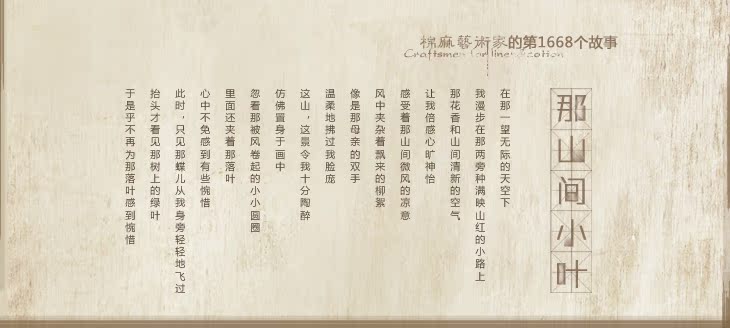 棉麻藝術家的第1668个故事
Craftsmen for linen & cotton
那山间小叶
在那一望无际的天空下
我漫步在那两旁种满映山红的小路上
那花香和山间清新的空气
让我倍感心旷神怡
感受着那山间微风的凉意
风中夹杂着飘来的柳絮
像是那母亲的双手
温柔地拂过我脸庞
这山，这景令我十分陶醉
仿佛置身于画中
忽看那被风卷起的小小圆圈
里面还夹着那落叶
心中不免感到有些惋惜
此时，只见那蝶儿从我身旁轻轻地飞过
抬头才看见那树上的绿叶
于是乎不再为那落叶感到惋惜